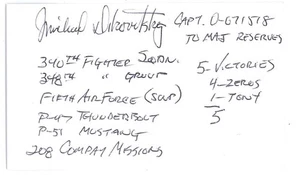 CAPT. O-671518
TO MAJ RESERVES
340TH FIGHTER SQDRN.
348TH " GROUP
FIFTH AIR FORCE (SOWP)
P-47 THUNDERBOLT
P-51 MUSTANG
208 COMBAT MISSIONS
5-VICTORIES
4-ZEROS
1-TONY
5